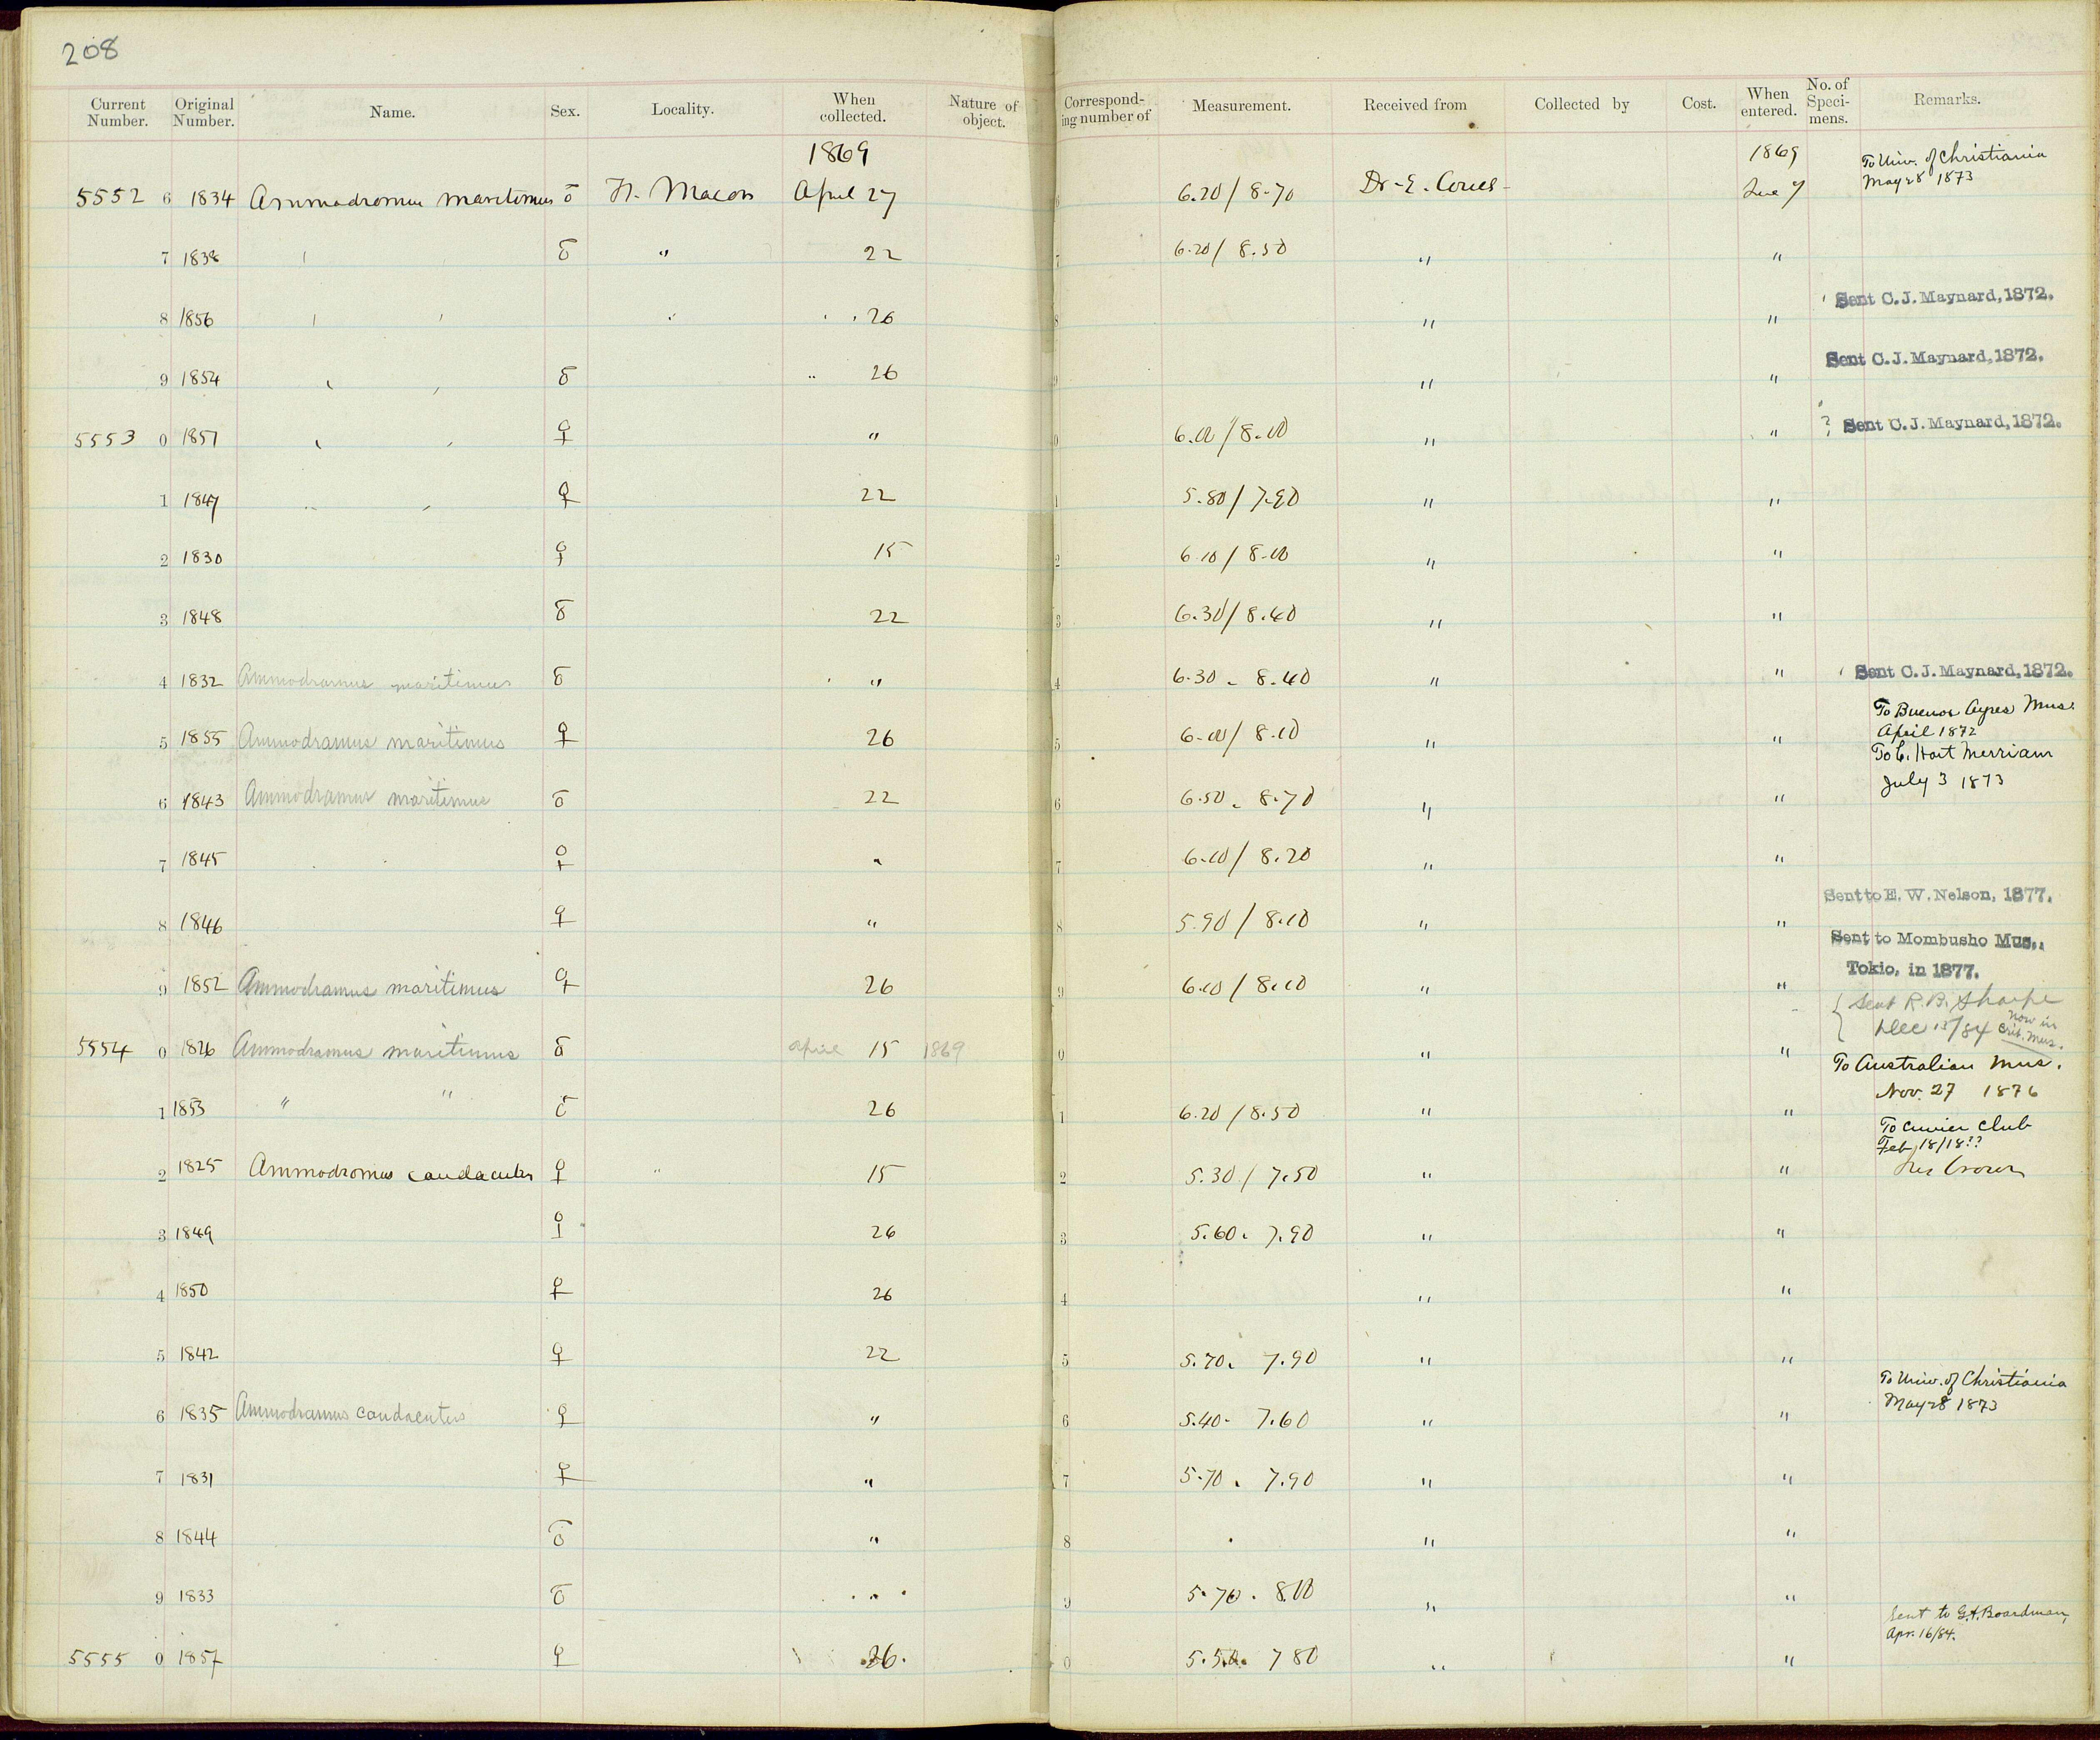 208
Current Number. Original Number. Name. Sex. Locality. When collected. Nature of object. Corresponding number of Measurement. Received from Collected by Cost. When entered. No. of Specimens. Remarks.
1869 1869 To Univ. of Christiania
5552 6 1834 Ammodromus maritimus ♂ Ft. Macon April 27 6 6.20/8.70 Dr. E. Coues May 28 1873
7 1838 ♂ " 22 7 6.20/8.50 " "
Sent C. J. Maynard, 1872.
8 1856 " 26 8 " "
Sent C. J. Maynard, 1872.
9 1854 ♂ " 26 9 " "
5553 0 1851 ♀ " 0 6.00/8.00 " " ? Sent C. J. Maynard, 1872.
1 1847 " " ♀ 22 1 5.80/7.90 " "
2 1830 ♀ 15 2 6.10/8.00 " "
3 1848 ♂ 22 3 6.30/8.40 " "
4 1832 Ammodramus maritimus ♂ " 4 6.30 - 8.40 " " Sent C. J. Maynard, 1872.
To Buenos Ayres Mus.
5 1855 Ammodramus maritimus ♀ 26 5 6.00/8.10 " " April 1872
To C. Hart Merriam
6 1843 Ammodramus maritimus ♂ 22 6 6.50 - 8.70 " " July 3 1873
7 1845 ♀ " 7 6.10/8.20 " "
Sent to E. W. Nelson, 1877.
8 1846 ♀ " 8 5.90/8.10 " "
Sent to Mombusho Mus.,
Tokio, in 1877.
9 1852 Ammodramus maritimus ♀ 26 9 6.10/8.10 " "
Sent R. B. Sharpe
Dec 13/84 now in Brit. Mus.
5554 0 1826 Ammodramus maritimus ♂ April 15 1869 0 " "
To Australian Mus.
Nov. 27 1876
1 1853 " " ♂ 26 1 6.20/8.50 " "
To Cuvier Club
Feb 18/18??
2 1825 Ammodromus caudacutus ♀ " 15 2 5.30/7.50 " "
3 1849 ♀ 26 3 5.60 . 7.90 " "
4 1850 ♀ 26 4 " "
5 1842 ♀ 22 5 5.70 . 7.90 " "
To Univ. of Christiania
May 28 1873
6 1835 Ammodramus caudacutus ♀ " 6 5.40 - 7.60 " "
7 1831 ♀ " 7 5.70 . 7.90 " "
8 1844 ♂ " 8 " "
9 1833 ♂ " 9 5.70 . 8.00 " "
Sent to G. A. Boardman,
Apr. 16/84.
5555 0 1857 ♀ 26. 0 5.50. 7 80 " "